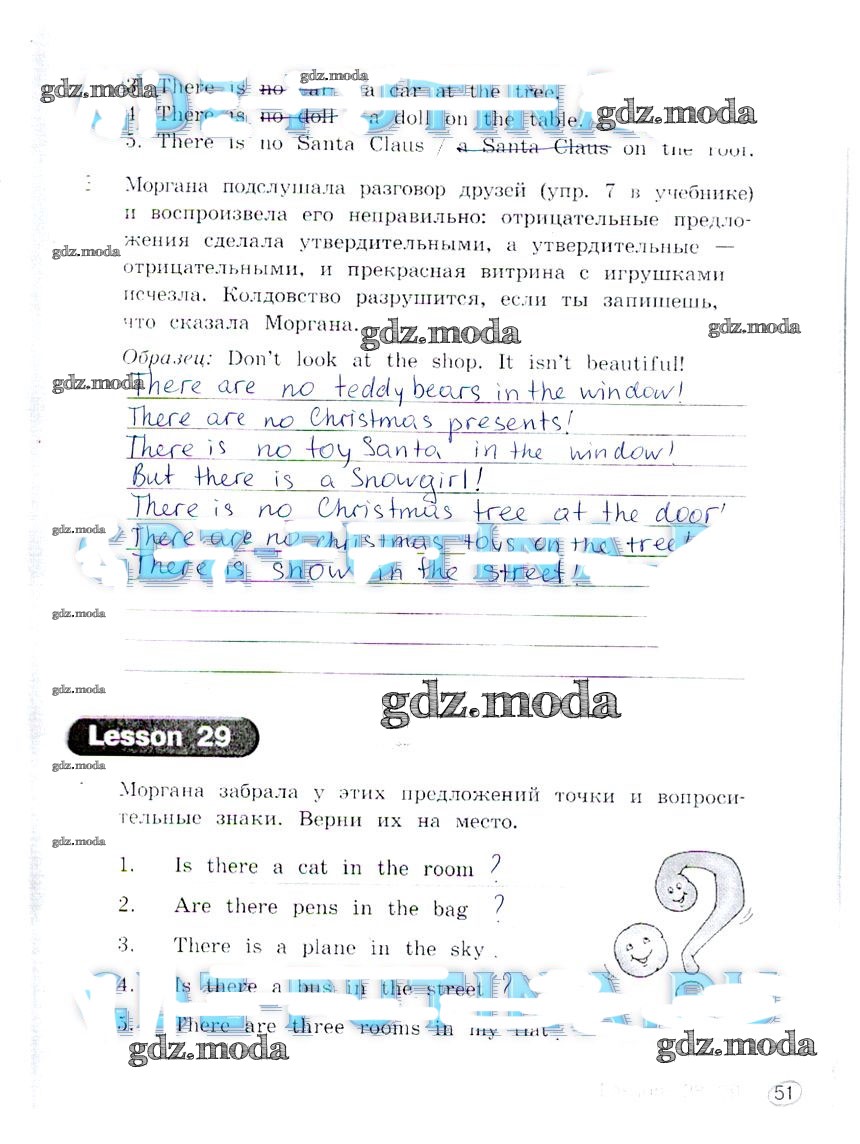 gdz.moda
3. There is no car / a car at the tree.
gdz.moda
gdz.moda
4. There is no doll / a doll on the table.
5. There is no Santa Claus / a Santa Claus on the roof.
Моргана подслушала разговор друзей (упр. 7 в учебнике)
и воспроизвела его неправильно: отрицательные предло-
gdz.moda
жения сделала утвердительными, а утвердительные —
отрицательными, и прекрасная витрина с игрушками
исчезла. Колдовство разрушится, если ты запишешь,
что сказала Моргана.
gdz.moda
gdz.moda
Образец: Don't look at the shop. It isn't beautiful!
gdz.moda
There are no teddy bears in the window!
There are no Christmas presents!
There is no toy Santa in the window!
But there is a Snowgirl!
There is no Christmas tree at the door!
gdz.moda
There are no christmas toys on the tree!
There is snow in the street!
gdz.moda
gdz.moda
gdz.moda
Lesson 29
gdz.moda
Моргана забрала у этих предложений точки и вопроси-
тельные знаки. Верни их на место.
gdz.moda
1. Is there a cat in the room ?
2. Are there pens in the bag ?
3. There is a plane in the sky .
4. Is there a bus in the street ?
5. There are three rooms in my flat .
gdz.moda
gdz.moda
51